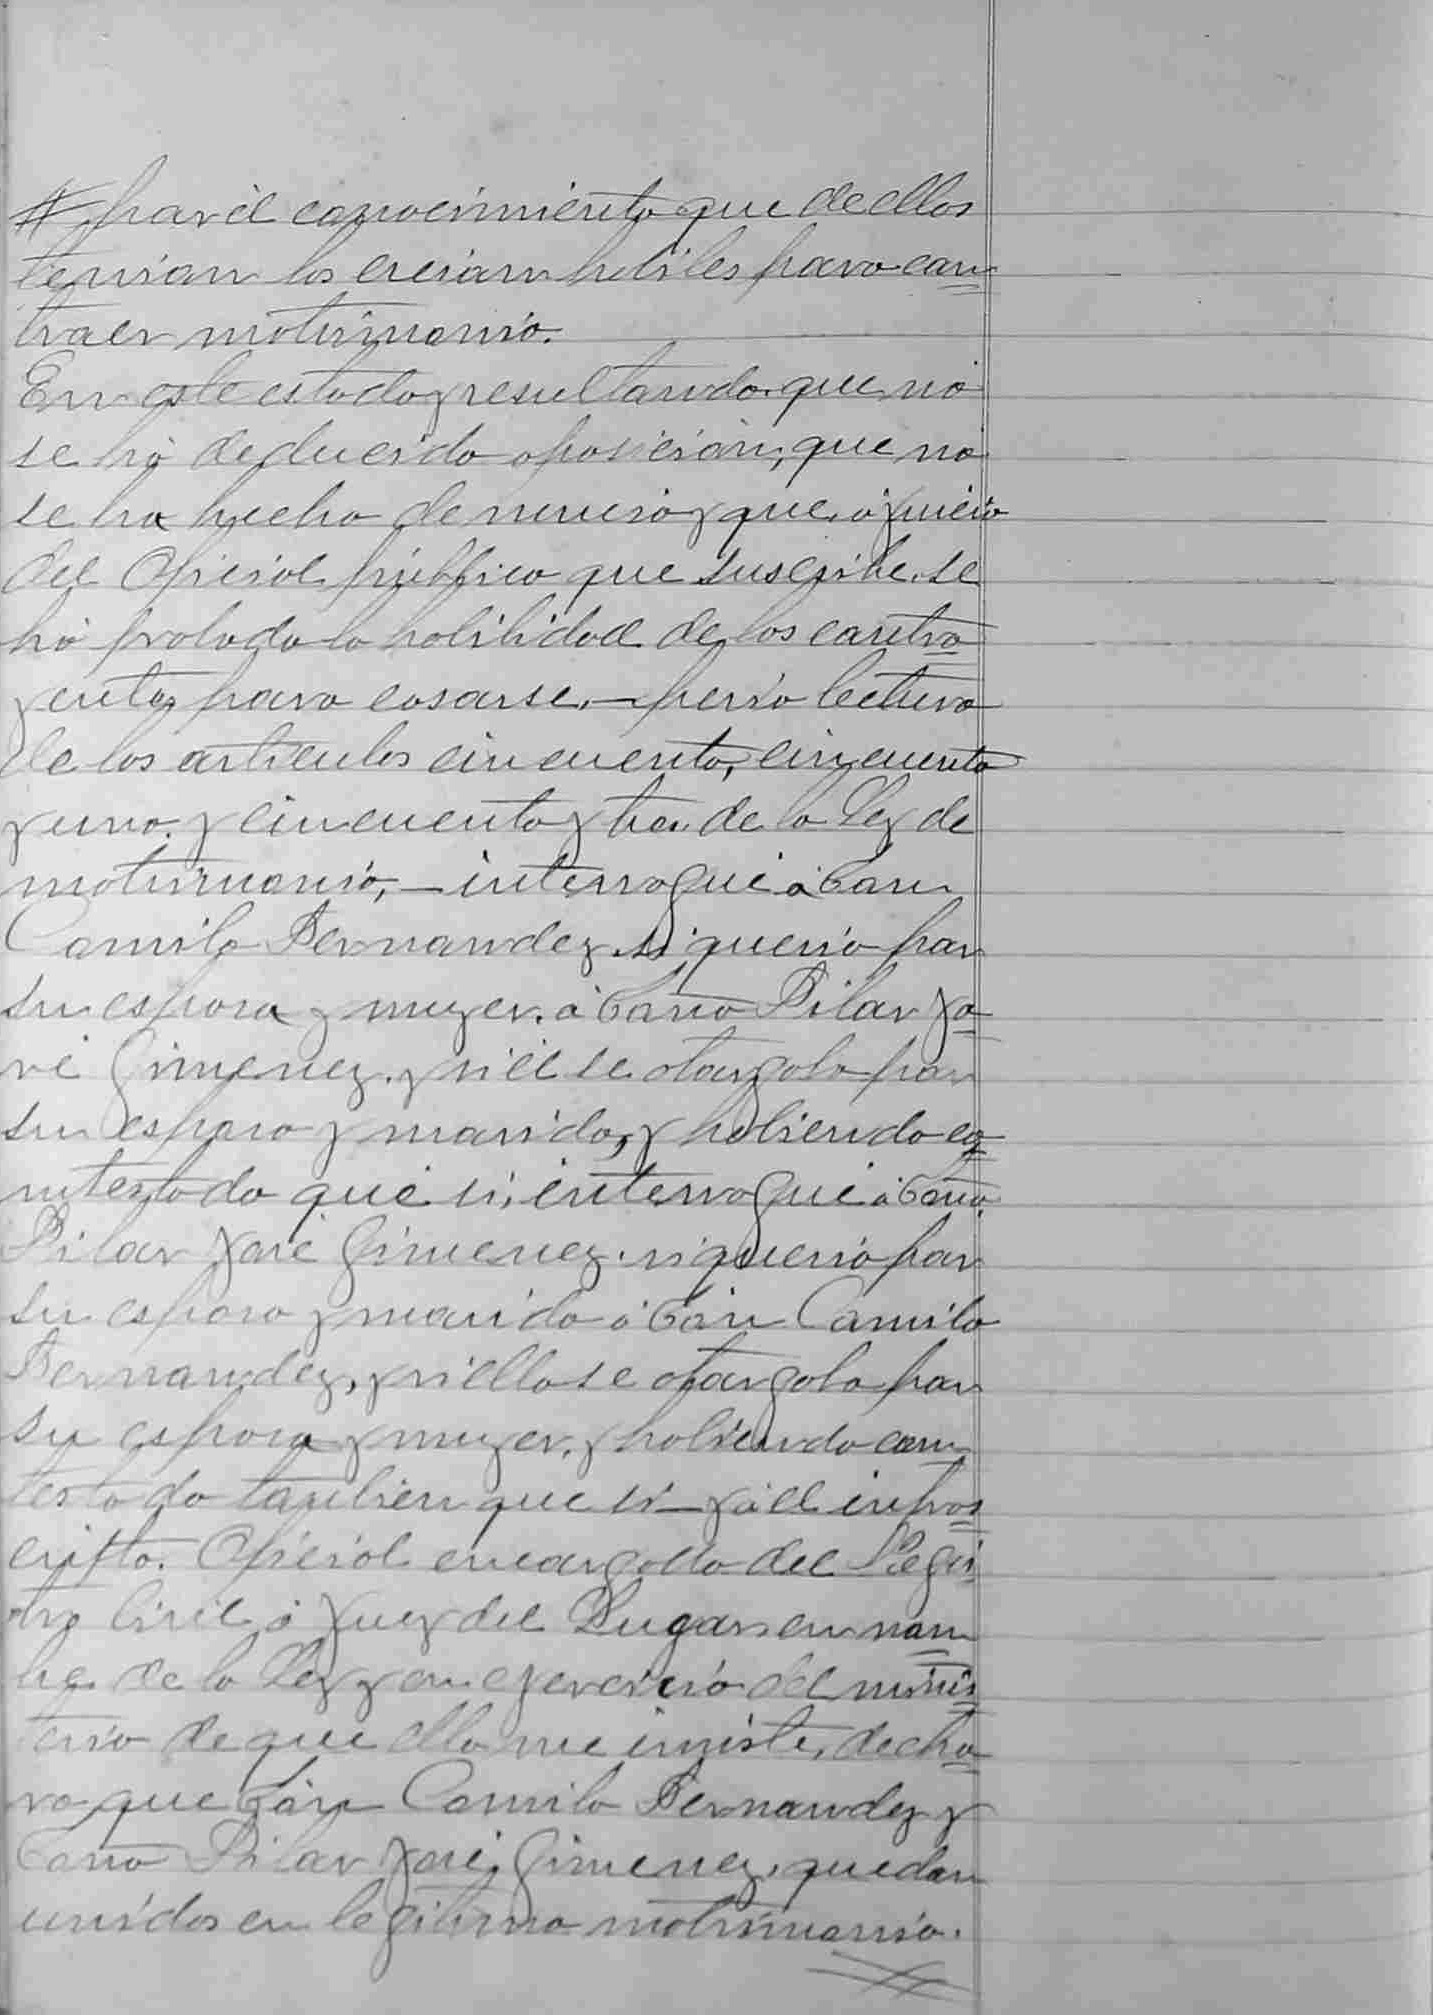 por él conocimiento que de ellos
tenian los creian habiles para con=
traer matrimonio.
En este estado y resultando que nó
se há deducido oposición, que nó
se ha hecho denuncia y que, á juicio
del Oficial público que suscribe, se
há probado la habilidad de los contra=
yentes para casarse, — previa lectura
de los artículos cincuenta, cincuenta
y uno, y cincuenta y tres de la Ley de
matrimonio, — interrogué á Don
Camilo Bernandez, si queria por
su esposa y muger, á Doña Pilar Jo=
sé Gimenez, y si él se otorgaba por
su esposo y marido, y habiendo co=
ntestado que si, interrogué á Doña
Pilar José Gimenez, si queria por
su esposo y marido á Don Camilo
Bernandez, y si ella se otorgaba por
su esposa y muger, y habiendo con
testado tambien que si — yó el infras=
cripto, Oficial encargado del Regis=
tro Civil ó Juez del Lugar, en nom=
bre de la Ley y en ejercicio del minis=
terio de que ella me inviste, decla=
ro que Don Camilo Bernandez y
Doña Pilar José Gimenez, quedan
unidos en legitimo matrimonio.